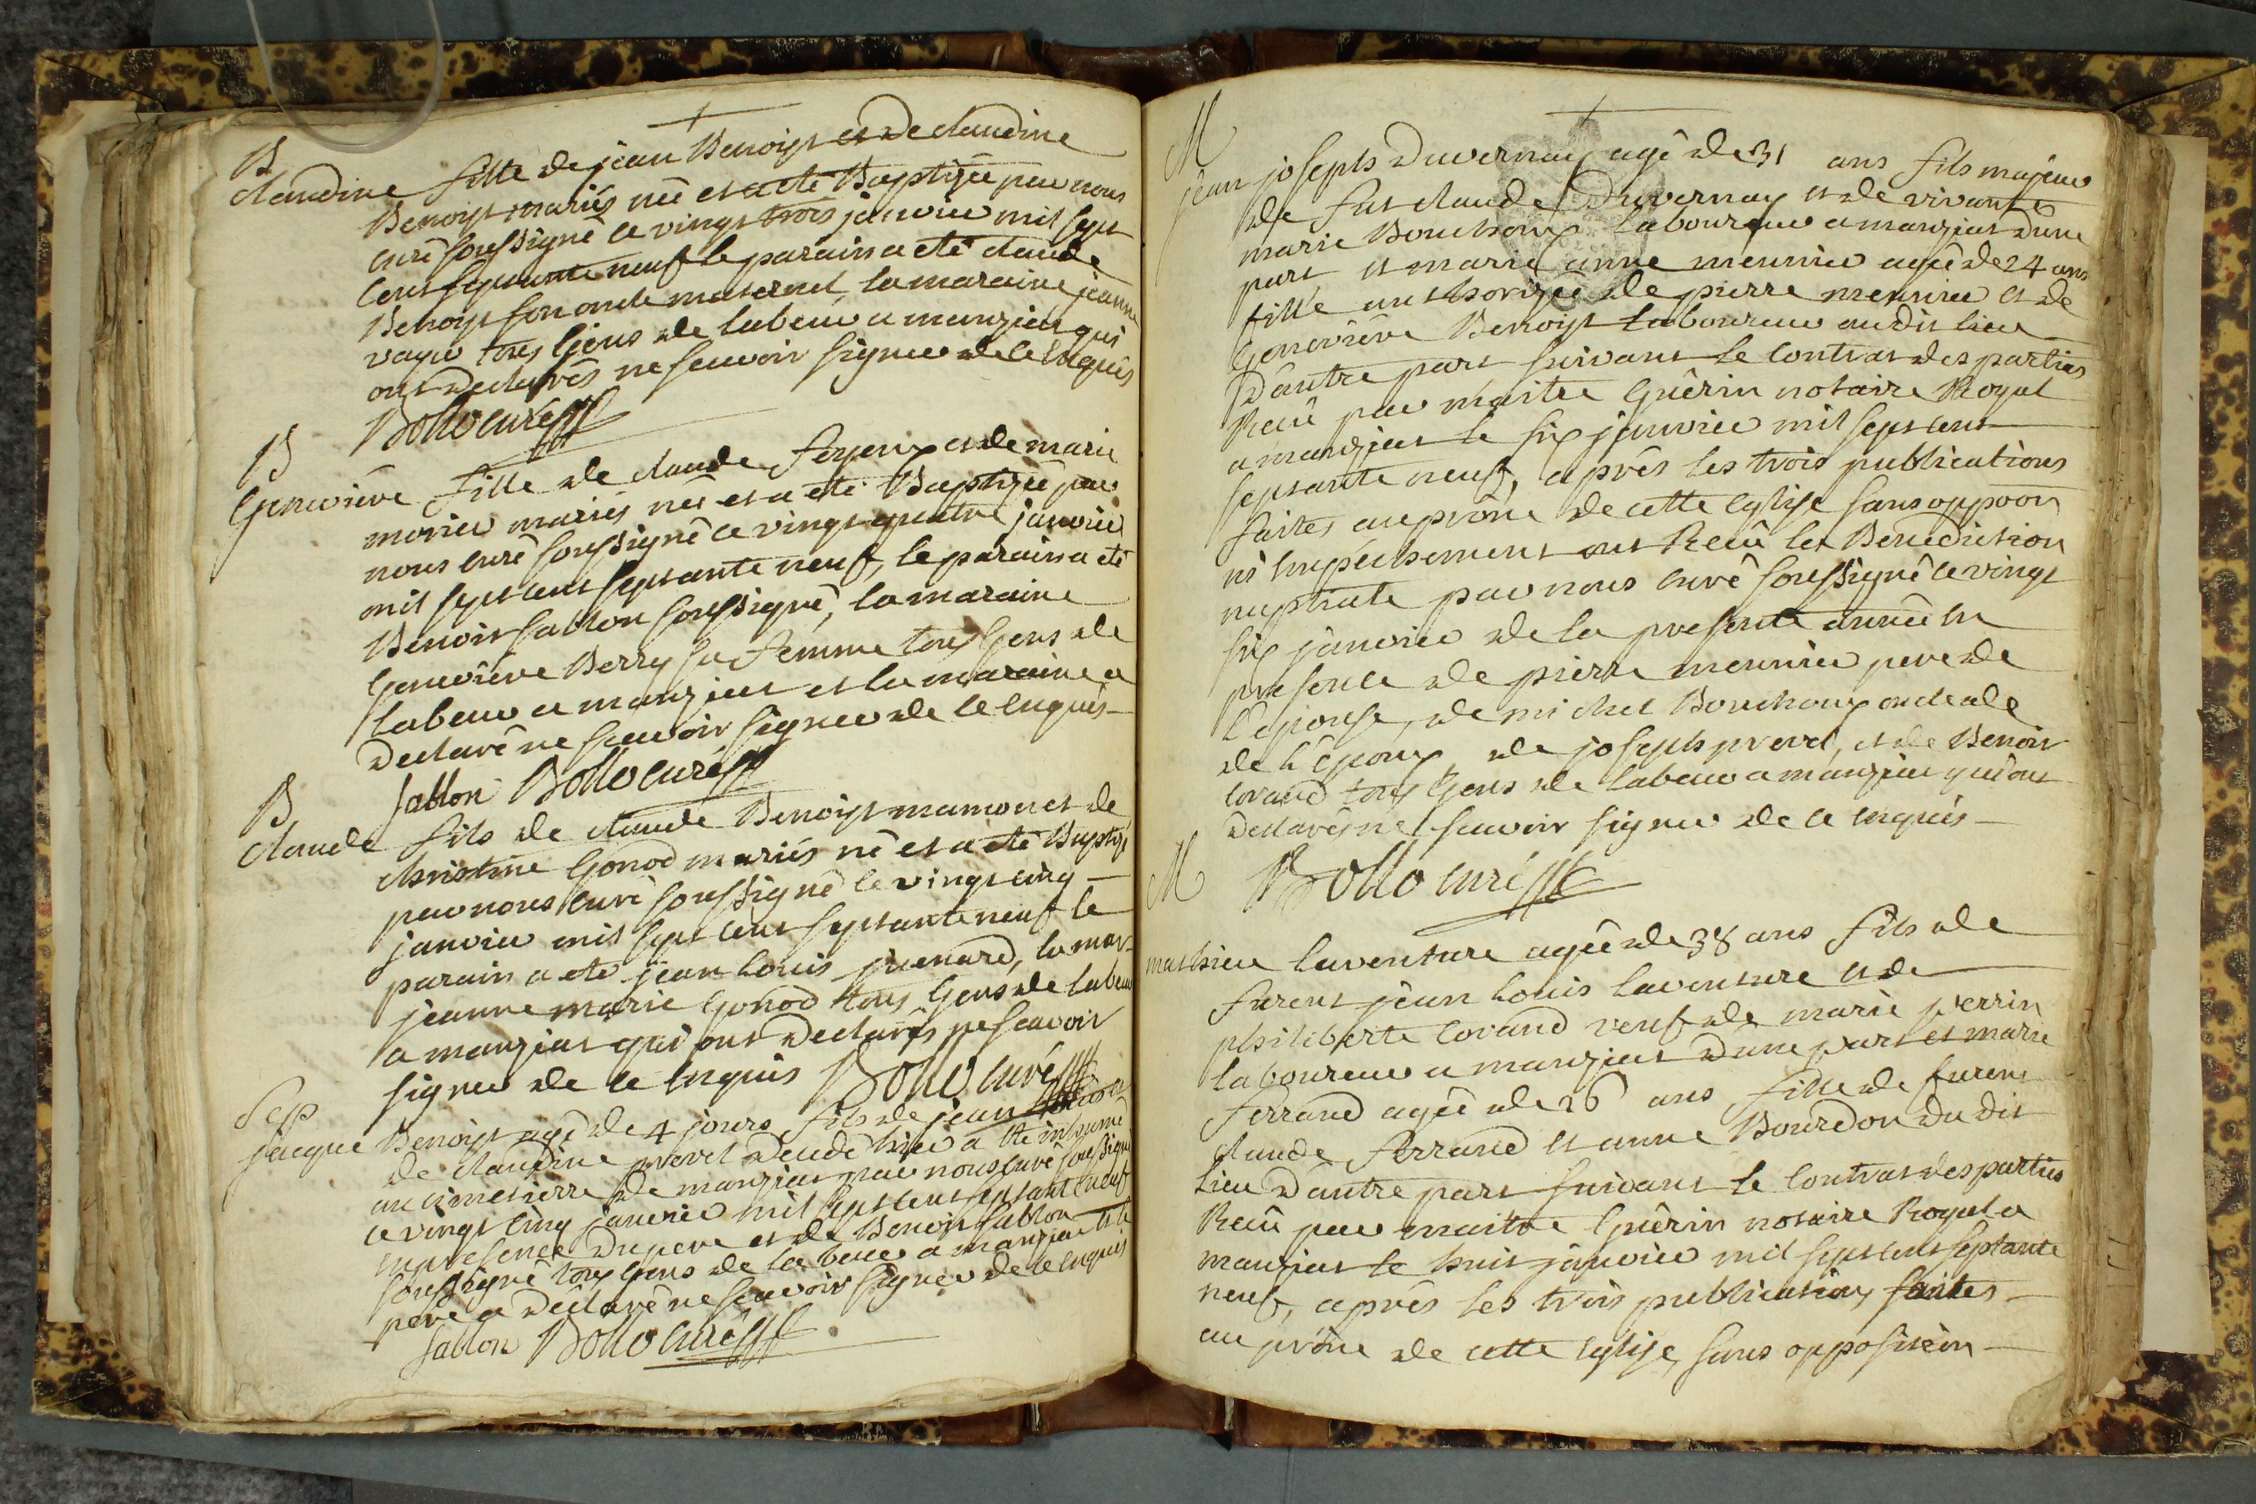 B
claudine fille de jean Benoist et de claudine
Benoist mariés née et a eté Baptizée par nous
curé soussigné ce vingt trois janvier mil sept
cent septante neuf le parain a eté claude
Benoist son oncle maternel, la maraine jeanne
tous Gens de labeur a manziat qui
ont declarés ne scavoir signer de ce enquis
Bollo curé
B
Genevieve fille de claude feyeux et de marie
morier mariés née et a eté Baptizée par
nous curé soussigné ce vingt quatre janvier
mil sept cent septante neuf, le parain a eté
Benoit sablon soussigné, la maraine
Genevieve Berry sa femme tous Gens de
labeur a manziat et la maraine a
declaré ne scavoir signer de ce enquis
sablon Bollo curé
B
claude fils de claude Benoist mamon et de
christine Gonod mariés né et a eté Baptizé
par nous curé soussigné le vingt cinq
janvier mil sept cent septante neuf le
parain a eté jean Louis, la mar
jeanne marie Gonod tous Gens de labeur
a manziat qui ont declarés ne scavoir
signer de ce enquis Bollo curé
Sep
jacque Benoist agé de 4 jours fils de jean
de claudine prevel decedé hier a eté inhumé
au cimetierre de manziat par nous curé soussigné
ce vingt cinq janvier mil sept cent septante neuf
en presence du pere et de Benoit sablon
soussigné tous Gens de labeur a manziat et le
pere a declaré ne scavoir signer de ce enquis
sablon Bollo curé
M
jean joseph Duvernay agé de 31 ans fils majeur
de fut claude Duvernay et de vivante
marie Bouchoux laboureur a manziat d'une
part, et marie anne meunier agée de 24 ans
fille authorizée de pierre meunier et de
Genevieve Benoist laboureur audit lieu
D'autre part suivant le contrat des parties
Receu par maitre Guérin notaire Royal
a manziat le six janvier mil sept cent
septante neuf, aprés les trois publications
faites au prône de cette Eglise sans oppoon
ni empechement ont Receu la Benediction
nuptiale par nous curé soussigné ce vingt
six janvier de la presente année en
presence de pierre meunier pere de
L'epouse, de michel Bouchoux oncle de
de L'epoux, de joseph prevel, et de Benoit
Corand tous Gens de labeur a manziat qui ont
declarés ne scavoir signer de ce enquis
Bollo curé
M
mathieu Laventure agée de 38 ans fils de
furent jean Louis Laventure et de
philiberte Corand veuf de marie perrin
laboureur a manziat d'une part et marie
ferrand agée de 26 ans fille de furent
claude ferrand et anne Bourdon du dit
Lieu D'autre part suivant le contrat des parties
Receu par maitre Guérin notaire Royal a
manziat le huit janvier mil sept cent septante
neuf, aprés les trois publications faites
au prône de cette Eglise, sans opposition